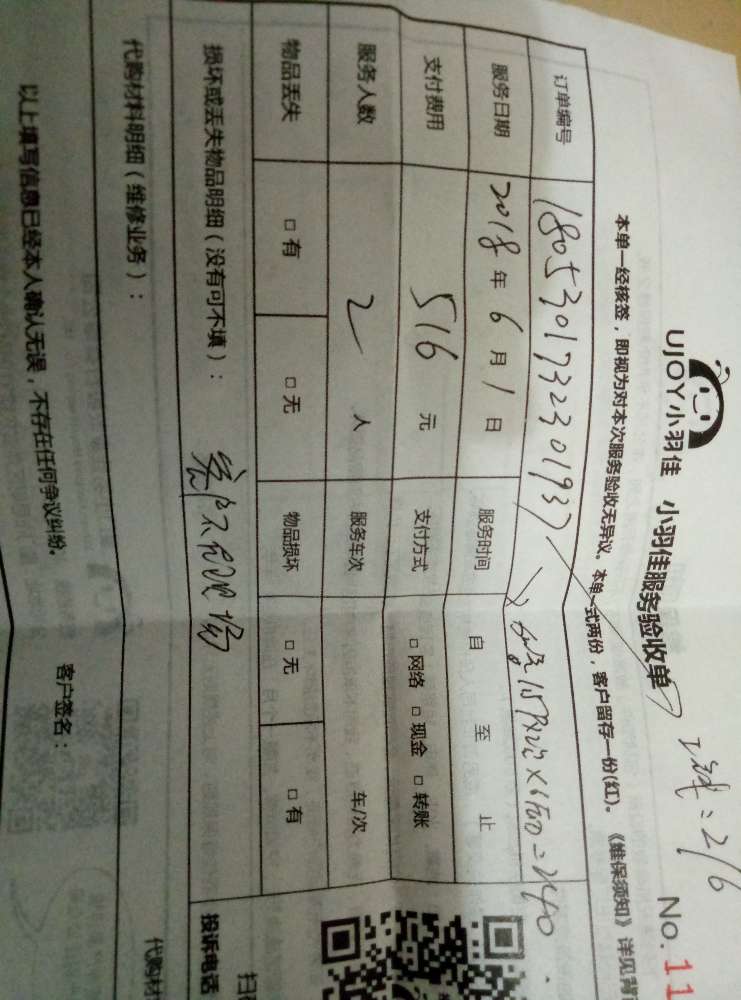 工钱=216
No. 11
UJOY小羽佳 小羽佳服务验收单
本单一经核签，即视为对本次服务验收无异议。本单一式两份，客户留存一份(红)。《维保须知》详见背
订单编号 1805301732301937
服务日期 2018年6月1日 服务时间 自 至 止
支付费用 516元 支付方式 □网络 □现金 □转账
服务人数 2人 服务车次 车/次
物品丢失 □有 □无 物品损坏 □无 □有
损坏或丢失物品明细（没有可不填）： 客户不在现场
投诉电话
代购材料明细（维修业务）：
代购材
以上填写信息已经本人确认无误，不存在任何争议纠纷。
客户签名：